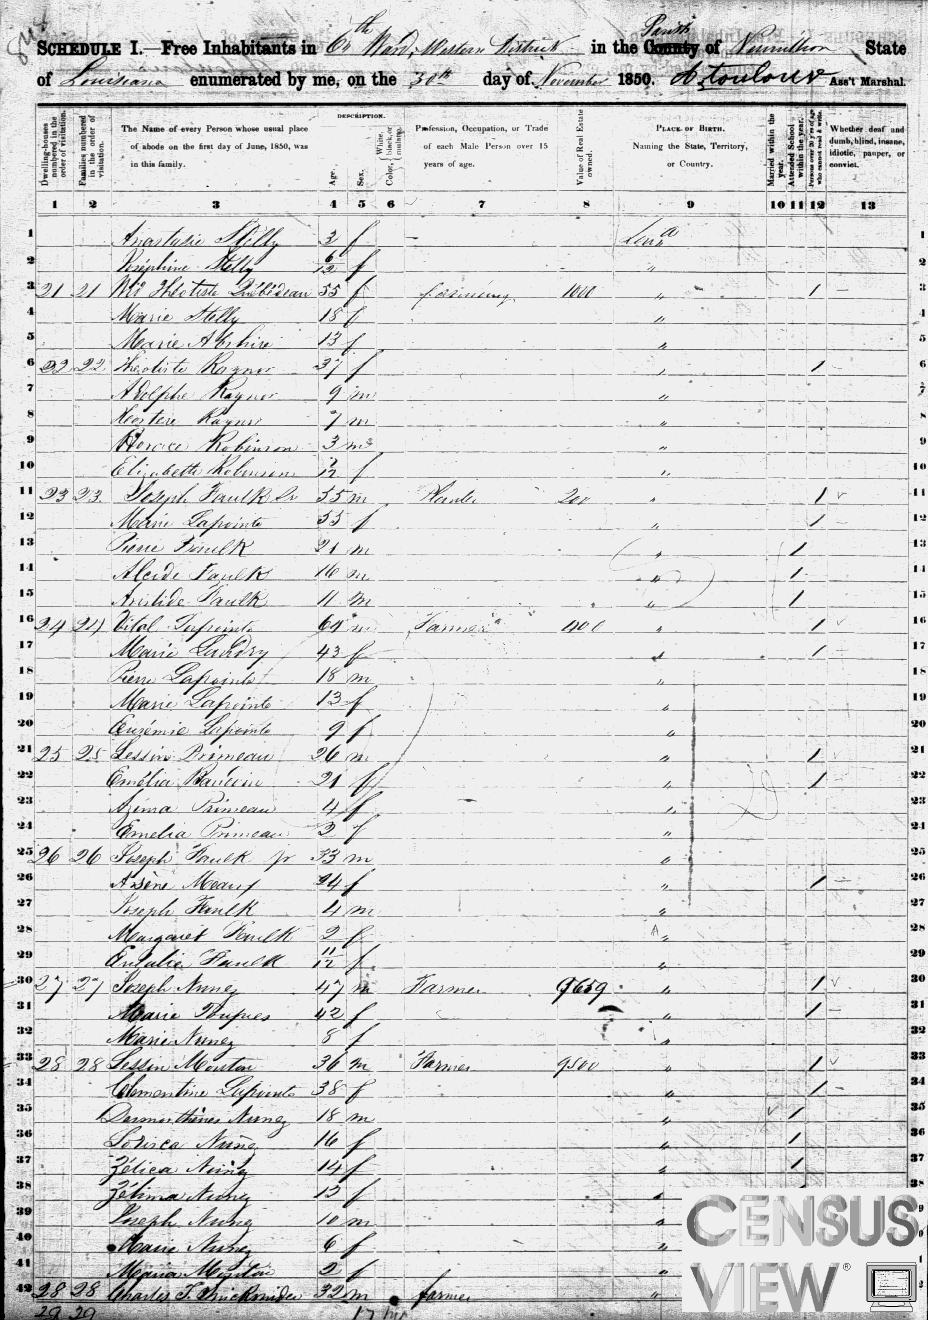 SCHEDULE I.—Free Inhabitants in 6th Ward, Western District in the Parish County of Vermillion State
of Louisiana enumerated by me, on the 30th day of November 1850. Ass't Marshal.
Dwelling-houses numbered in the order of visitation.
Families numbered in the order of visitation.
The Name of every Person whose usual place of abode on the first day of June, 1850, was in this family.
DESCRIPTION.
Age.
Sex.
Color, White, black, or mulatto.
Profession, Occupation, or Trade of each Male Person over 15 years of age.
Value of Real Estate owned.
PLACE OF BIRTH. Naming the State, Territory, or Country.
Married within the year.
Attended School within the year.
Persons over 20 y'rs of age who cannot read & write.
Whether deaf and dumb, blind, insane, idiotic, pauper, or convict.
1 2 3 4 5 6 7 8 9 10 11 12 13
1 Anastasie Stelly 3 f Lou'a 1
2 Joséphine Stelly 6/12 f " 2
3 21 21 Theotiste 55 f farming 1000 " 1 3
4 Marie Stelly 18 f " 4
5 Marie Abshire 13 f " 5
6 22 22 Theotiste Raynor 37 f " 1 6
7 Adolphe Raynor 9 m " 7
8 Raynor 7 m " 8
9 Horace Robinson 3 m " 9
10 Elizabeth Robinson /12 f " 10
11 23 23 Joseph Faulk Sr 55 m Planter 200 " 1 11
12 Marie Lapointe 55 f " 1 12
13 Pierre Faulk 21 m " 1 13
14 Alcide Faulk 16 m " 1 14
15 Aristide Faulk 11 m " 1 15
16 24 24 Vital Lapointe 64 m Farmer 400 " 1 16
17 Marie Landry 43 f " 1 17
18 Pierre Lapointe 18 m " 18
19 Marie Lapointe 13 f " 19
20 Euzémie Lapointe 9 f " 20
21 25 25 Lessin Primeau 26 m " 1 21
22 Emélia 21 f " 1 22
23 Azéma Primeau 4 f " 23
24 Emelia Primeau 2 f " 24
25 26 26 Joseph Faulk jr 33 m " 25
26 Arsène Meaux 24 f " 1 26
27 Joseph Faulk 4 m " 27
28 Margaret Faulk 2 f " 28
29 Eulalie Faulk 11/12 f " 29
30 27 27 Joseph Nunez 47 m Farmer " 1 30
31 Marie 42 f " 1 31
32 Marie Nunez 8 f " 32
33 28 28 Lessin Mouton 36 m Farmer 9500 " 1 33
34 Clementine Lapointe 38 f " 1 34
35 Desmosthènes Nunez 18 m " 1 35
36 Nunez 16 f " 1 36
37 Zélica Nunez 14 f " 1 37
38 Zélima Nunez 13 f " 38
39 Joseph Nunez 10 m " 39
40 Marie Nunez 6 f "
41 Maria Mouton 2 f
42 28 28 Charles 32 m farmer "
29 29 17 m
CENSUS
VIEW®